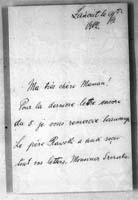 1882
Ma très chère Maman!
Pour la dernière lettre encore
du 5 je vous remercie beaucoup
Le père a aussi reçu
tout vos lettres. Monsieur